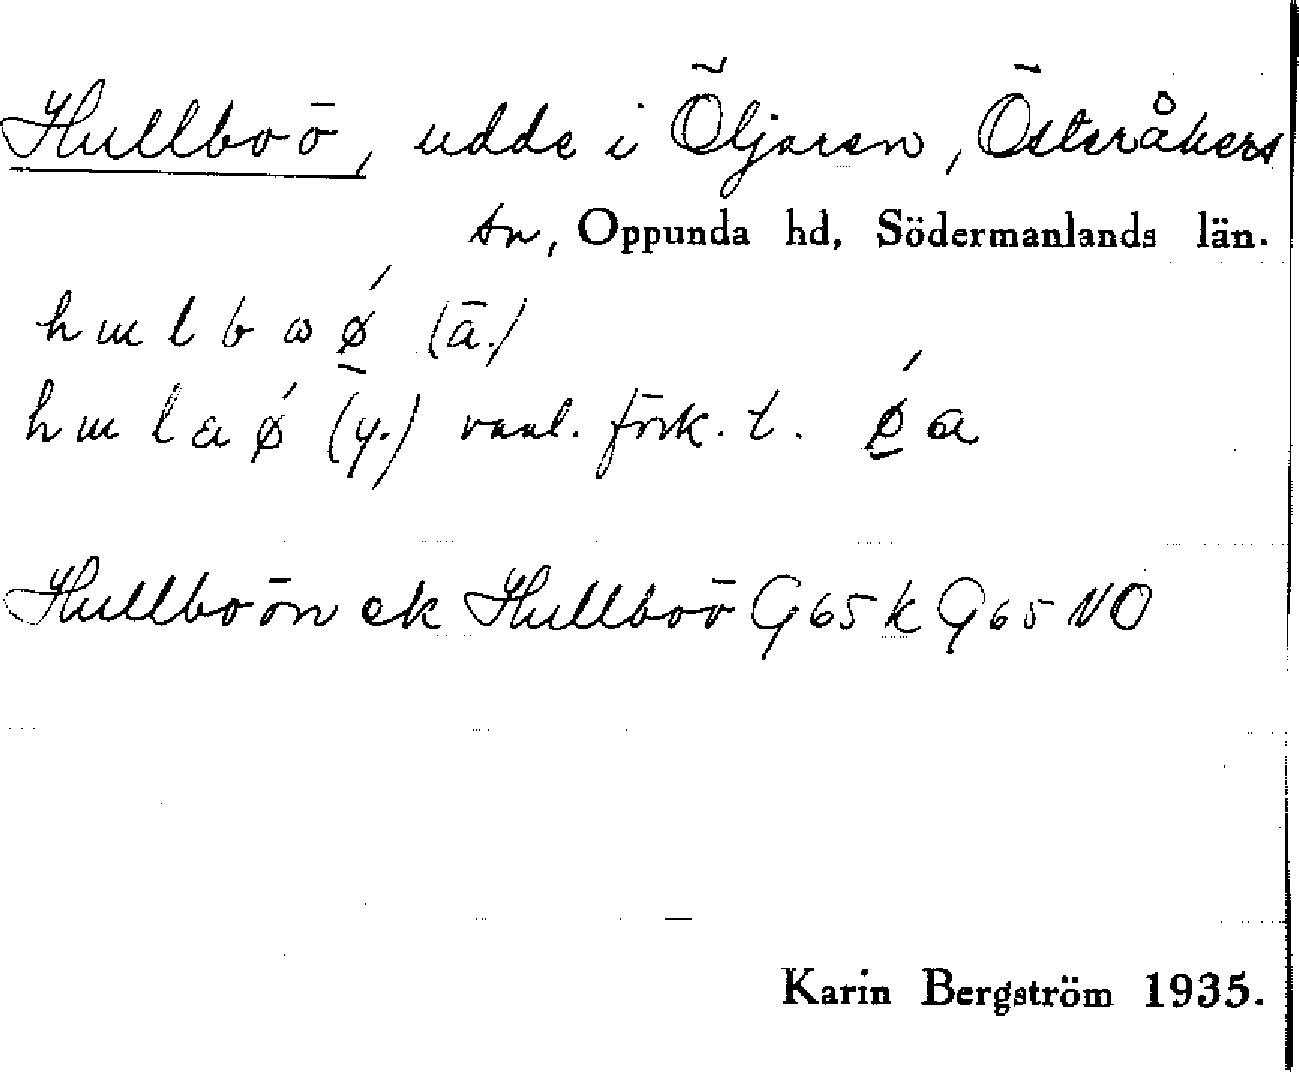 Hullboö, udde i Öljaren, Österåkers
sn, Oppunda hd, Södermanlands län.
h u l b ω ǿ (ä.)
h u l a ǿ (y.) vanl. förk. t. ǿ a
Hullboön ek Hullboö G65k G65 NO
Karin Bergström 1935.